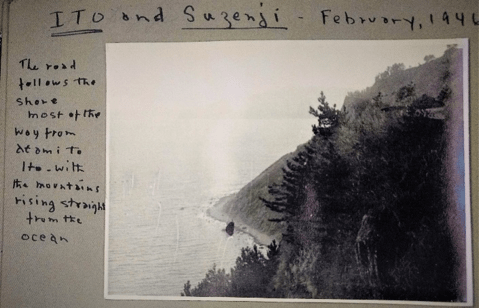 ITO and Suzenji - February, 194
The road
follows the
shore
most of the
way from
Atami to
Ito - with
the mountains
rising straight
from the
ocean